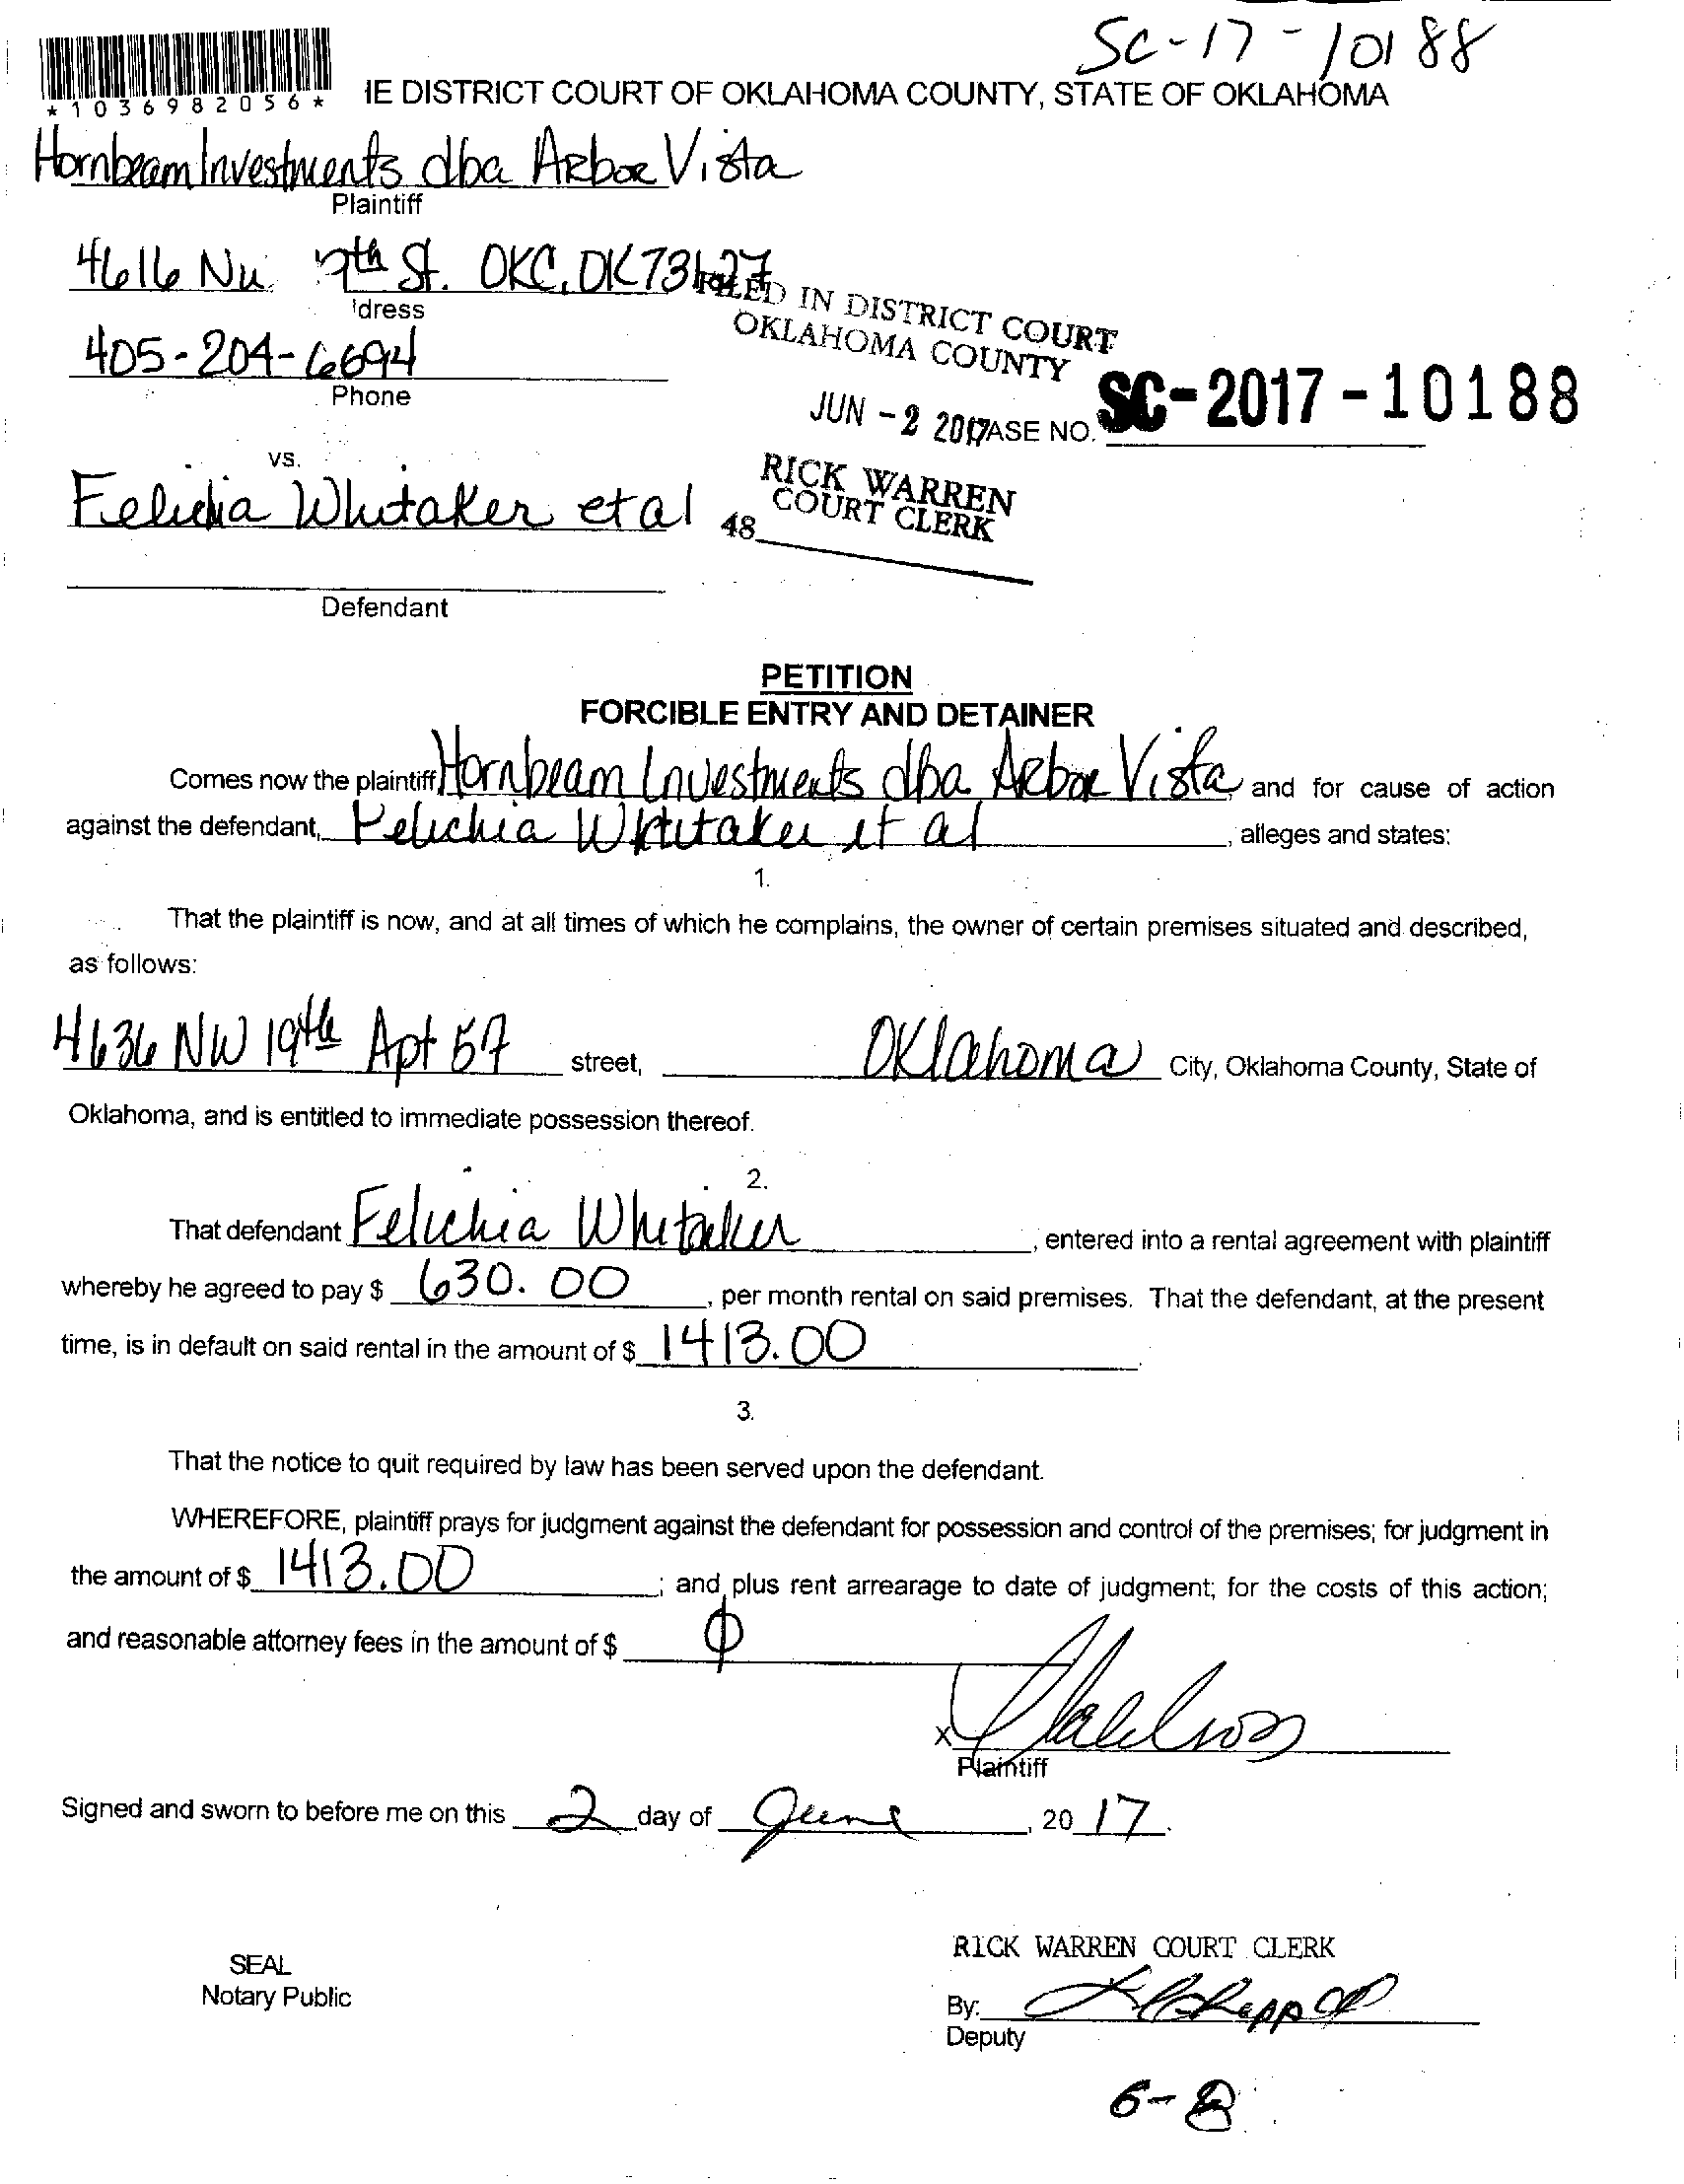 SC-17-10188
*1036982056*
IE DISTRICT COURT OF OKLAHOMA COUNTY, STATE OF OKLAHOMA
Hornbeam Investments dba Arbor Vista
Plaintiff
4616 NW 19th St. OKC, OK 73127
dress
405-204-6694
Phone
FILED IN DISTRICT COURT
OKLAHOMA COUNTY
JUN -2 2017
ASE NO. SC-2017-10188
RICK WARREN
COURT CLERK
48
vs.
Felichia Whitaker et al
Defendant
PETITION
FORCIBLE ENTRY AND DETAINER
Comes now the plaintiff, Hornbeam Investments dba Arbor Vista, and for cause of action
against the defendant, Felichia Whitaker et al, alleges and states:
1.
That the plaintiff is now, and at all times of which he complains, the owner of certain premises situated and described,
as follows:
4636 NW 19th Apt 57 street, Oklahoma City, Oklahoma County, State of
Oklahoma, and is entitled to immediate possession thereof.
2.
That defendant Felichia Whitaker, entered into a rental agreement with plaintiff
whereby he agreed to pay $ 630.00, per month rental on said premises. That the defendant, at the present
time, is in default on said rental in the amount of $ 1413.00.
3.
That the notice to quit required by law has been served upon the defendant.
WHEREFORE, plaintiff prays for judgment against the defendant for possession and control of the premises; for judgment in
the amount of $ 1413.00; and plus rent arrearage to date of judgment; for the costs of this action;
and reasonable attorney fees in the amount of $ ϕ
X
Plaintiff
Signed and sworn to before me on this 2 day of June, 20 17.
SEAL
Notary Public
RICK WARREN COURT CLERK
By:
Deputy
6-8